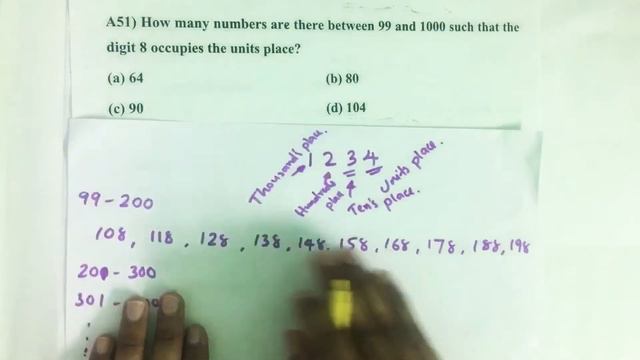 A51) How many numbers are there between 99 and 1000 such that the
digit 8 occupies the units place?
(a) 64 (b) 80
(c) 90 (d) 104
1 2 3 4
Thousand's plau.
Hundreds plau
Ten's place.
Units place.
99-200
108, 118, 128, 138, 148, 158, 168, 178, 188, 198
201 - 300
301 -